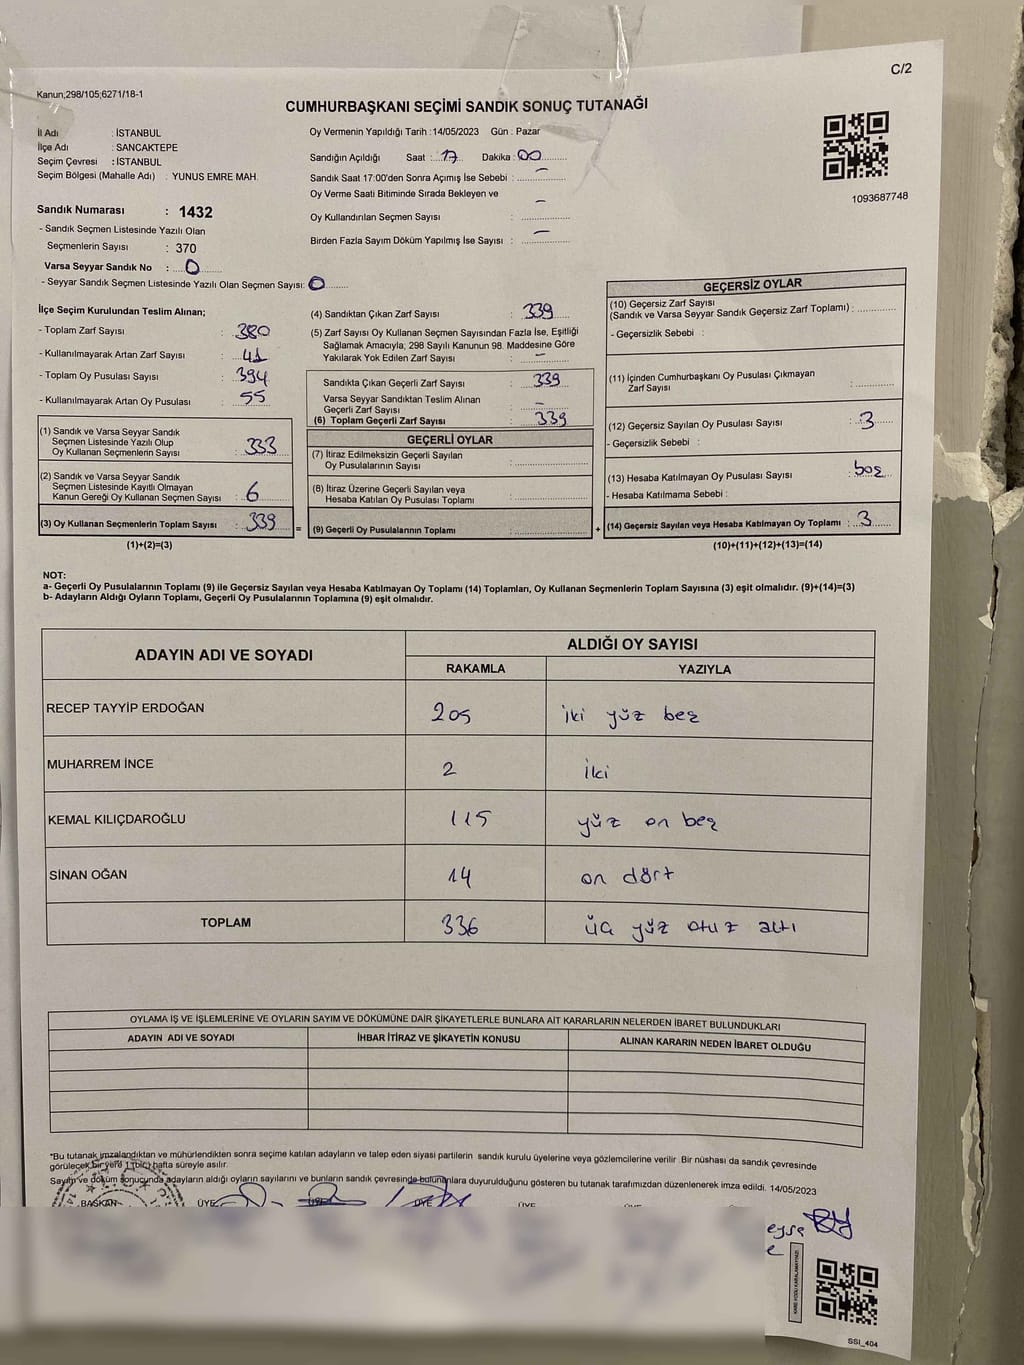 C/2
Kanun;298/105;6271/18-1
CUMHURBAŞKANI SEÇİMİ SANDIK SONUÇ TUTANAĞI
İl Adı : İSTANBUL
İlçe Adı : SANCAKTEPE
Seçim Çevresi : İSTANBUL
Seçim Bölgesi (Mahalle Adı) : YUNUS EMRE MAH.
Sandık Numarası : 1432
- Sandık Seçmen Listesinde Yazılı Olan
Seçmenlerin Sayısı : 370
Varsa Seyyar Sandık No : 0
- Seyyar Sandık Seçmen Listesinde Yazılı Olan Seçmen Sayısı: 0
Oy Vermenin Yapıldığı Tarih :14/05/2023 Gün : Pazar
Sandığın Açıldığı Saat : 17 Dakika : 00
Sandık Saat 17:00'den Sonra Açımış İse Sebebi : –
Oy Verme Saati Bitiminde Sırada Bekleyen ve
Oy Kullandırılan Seçmen Sayısı : –
Birden Fazla Sayım Döküm Yapılmış İse Sayısı : –
1093687748
İlçe Seçim Kurulundan Teslim Alınan;
- Toplam Zarf Sayısı : 380
- Kullanılmayarak Artan Zarf Sayısı : 41
- Toplam Oy Pusulası Sayısı : 394
- Kullanılmayarak Artan Oy Pusulası : 55
(1) Sandık ve Varsa Seyyar Sandık
Seçmen Listesinde Yazılı Olup
Oy Kullanan Seçmenlerin Sayısı : 333
(2) Sandık ve Varsa Seyyar Sandık
Seçmen Listesinde Kayıtlı Olmayan
Kanun Gereği Oy Kullanan Seçmen Sayısı : 6
(3) Oy Kullanan Seçmenlerin Toplam Sayısı : 339
(1)+(2)=(3)
(4) Sandıktan Çıkan Zarf Sayısı : 339
(5) Zarf Sayısı Oy Kullanan Seçmen Sayısından Fazla İse, Eşitliği
Sağlamak Amacıyla; 298 Sayılı Kanunun 98. Maddesine Göre
Yakılarak Yok Edilen Zarf Sayısı : –
Sandıkta Çıkan Geçerli Zarf Sayısı : 339
Varsa Seyyar Sandıktan Teslim Alınan
Geçerli Zarf Sayısı : –
(6) Toplam Geçerli Zarf Sayısı : 339
GEÇERLİ OYLAR
(7) İtiraz Edilmeksizin Geçerli Sayılan
Oy Pusulalarının Sayısı :
(8) İtiraz Üzerine Geçerli Sayılan veya
Hesaba Katılan Oy Pusulası Toplamı :
= (9) Geçerli Oy Pusulalarının Toplamı :
GEÇERSİZ OYLAR
(10) Geçersiz Zarf Sayısı
(Sandık ve Varsa Seyyar Sandık Geçersiz Zarf Toplamı) :
- Geçersizlik Sebebi :
(11) İçinden Cumhurbaşkanı Oy Pusulası Çıkmayan
Zarf Sayısı :
(12) Geçersiz Sayılan Oy Pusulası Sayısı : 3
- Geçersizlik Sebebi :
(13) Hesaba Katılmayan Oy Pusulası Sayısı : boş
- Hesaba Katılmama Sebebi :
+ (14) Geçersiz Sayılan veya Hesaba Katılmayan Oy Toplamı : 3
(10)+(11)+(12)+(13)=(14)
NOT:
a- Geçerli Oy Pusulalarının Toplamı (9) ile Geçersiz Sayılan veya Hesaba Katılmayan Oy Toplamı (14) Toplamları, Oy Kullanan Seçmenlerin Toplam Sayısına (3) eşit olmalıdır. (9)+(14)=(3)
b- Adayların Aldığı Oyların Toplamı, Geçerli Oy Pusulalarının Toplamına (9) eşit olmalıdır.
ADAYIN ADI VE SOYADI ALDIĞI OY SAYISI
RAKAMLA YAZIYLA
RECEP TAYYİP ERDOĞAN 205 iki yüz beş
MUHARREM İNCE 2 iki
KEMAL KILIÇDAROĞLU 115 yüz on beş
SİNAN OĞAN 14 on dört
TOPLAM 336 üç yüz otuz altı
OYLAMA İŞ VE İŞLEMLERİNE VE OYLARIN SAYIM VE DÖKÜMÜNE DAİR ŞİKAYETLERLE BUNLARA AİT KARARLARIN NELERDEN İBARET BULUNDUKLARI
ADAYIN ADI VE SOYADI İHBAR İTİRAZ VE ŞİKAYETİN KONUSU ALINAN KARARIN NEDEN İBARET OLDUĞU
*Bu tutanak imzalandıktan ve mühürlendikten sonra seçime katılan adayların ve talep eden siyasi partilerin sandık kurulu üyelerine veya gözlemcilerine verilir .Bir nüshası da sandık çevresinde
görülecek bir yere 1 (bir) hafta süreyle asılır.
Sayım ve döküm sonucunda adayların aldığı oyların sayılarını ve bunların sandık çevresinde bulunanlara duyurulduğunu gösteren bu tutanak tarafımızdan düzenlenerek imza edildi. 14/05/2023
BAŞKAN ÜYE ÜYE ÜYE ÜYE
SSİ_404